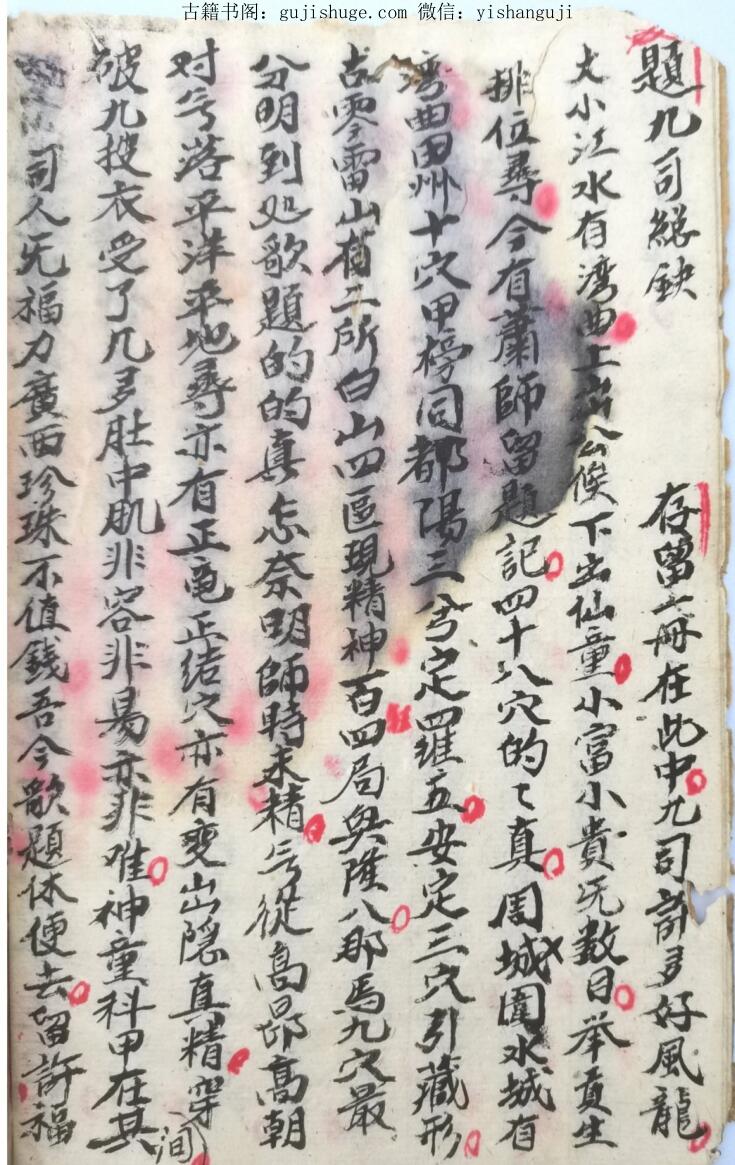 古籍书阁：gujishuge.com 微信：yishanguji
題九司総鈌 存留上冊在此中九司許多好風龍
大小江水有湾曲上 公候下出仙童小富小貴无数目举貢生
排位尋今有蕭師留題記四十八穴的々真周城圍水城有
湾曲田州十穴甲榜同都陽三兮定羅五安定三穴引藏形
古零雷山有二所白山四區現精神百四局興隆八那馬九穴最
分明到处歌題的的真怎奈明師時未精兮從高昻高朝
对兮落平洋平地尋亦有正龟正结穴亦有变出隐真精穿
破九搜衣受了几多肚中肌非容非易亦非难神童科甲在其间
司人无福力廣西珍珠不值錢吾今歌題休便去留許福